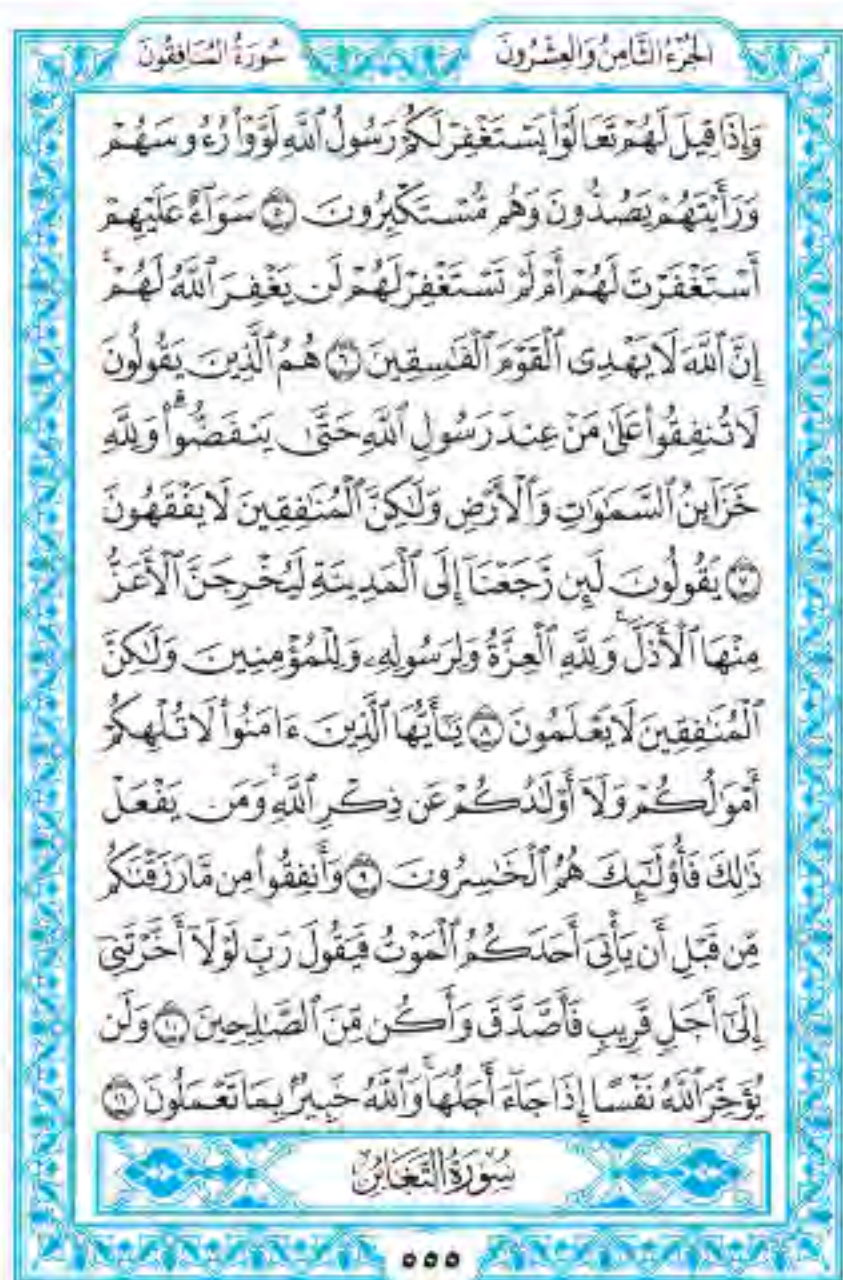 الجُزْءُ الثَّامِنُ وَالعِشْرُونَ
سُورَةُ المُنَافِقُونَ
وَإِذَا قِيلَ لَهُمْ تَعَالَوْا۟ يَسْتَغْفِرْ لَكُمْ رَسُولُ ٱللَّهِ لَوَّوْا۟ رُءُوسَهُمْ
وَرَأَيْتَهُمْ يَصُدُّونَ وَهُم مُّسْتَكْبِرُونَ ۝٥ سَوَآءٌ عَلَيْهِمْ
أَسْتَغْفَرْتَ لَهُمْ أَمْ لَمْ تَسْتَغْفِرْ لَهُمْ لَن يَغْفِرَ ٱللَّهُ لَهُمْ ۚ
إِنَّ ٱللَّهَ لَا يَهْدِى ٱلْقَوْمَ ٱلْفَـٰسِقِينَ ۝٦ هُمُ ٱلَّذِينَ يَقُولُونَ
لَا تُنفِقُوا۟ عَلَىٰ مَنْ عِندَ رَسُولِ ٱللَّهِ حَتَّىٰ يَنفَضُّوا۟ ۗ وَلِلَّهِ
خَزَآئِنُ ٱلسَّمَـٰوَٰتِ وَٱلْأَرْضِ وَلَـٰكِنَّ ٱلْمُنَـٰفِقِينَ لَا يَفْقَهُونَ
۝٧ يَقُولُونَ لَئِن رَّجَعْنَآ إِلَى ٱلْمَدِينَةِ لَيُخْرِجَنَّ ٱلْأَعَزُّ
مِنْهَا ٱلْأَذَلَّ ۚ وَلِلَّهِ ٱلْعِزَّةُ وَلِرَسُولِهِۦ وَلِلْمُؤْمِنِينَ وَلَـٰكِنَّ
ٱلْمُنَـٰفِقِينَ لَا يَعْلَمُونَ ۝٨ يَـٰٓأَيُّهَا ٱلَّذِينَ ءَامَنُوا۟ لَا تُلْهِكُمْ
أَمْوَٰلُكُمْ وَلَآ أَوْلَـٰدُكُمْ عَن ذِكْرِ ٱللَّهِ ۚ وَمَن يَفْعَلْ
ذَٰلِكَ فَأُو۟لَـٰٓئِكَ هُمُ ٱلْخَـٰسِرُونَ ۝٩ وَأَنفِقُوا۟ مِن مَّا رَزَقْنَـٰكُم
مِّن قَبْلِ أَن يَأْتِىَ أَحَدَكُمُ ٱلْمَوْتُ فَيَقُولَ رَبِّ لَوْلَآ أَخَّرْتَنِىٓ
إِلَىٰٓ أَجَلٍ قَرِيبٍ فَأَصَّدَّقَ وَأَكُن مِّنَ ٱلصَّـٰلِحِينَ ۝١٠ وَلَن
يُؤَخِّرَ ٱللَّهُ نَفْسًا إِذَا جَآءَ أَجَلُهَا ۚ وَٱللَّهُ خَبِيرٌۢ بِمَا تَعْمَلُونَ ۝١١
سُورَةُ التَّغَابُنِ
٥٥٥